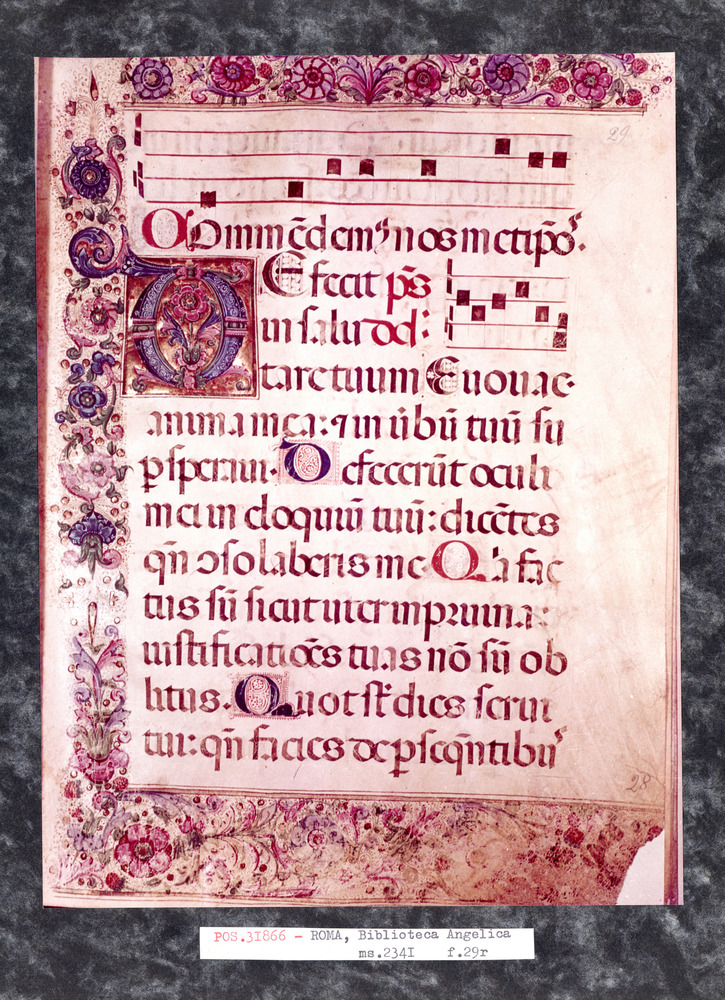 29
Commēdemꝰ nosmetip̄os.
Defecit ps̄
in salu dd̄:
tare tuum Euouae.
anima mea: ⁊ in ūbū tuū su
ꝑsperaui. Defecerūt oculi
mei in eloquiū tuū: dicētes
qn̄ ↄsolaberis me Qꝛa fac
tus sū sicut uter in pruina:
iustificatiōes tuas nō sū ob
litus. Quot st̄ dies serui
tui: qn̄ facies de ꝑseq̄ntibuꝰ
28
POS.31866 - ROMA, Biblioteca Angelica
ms.2341 f.29r